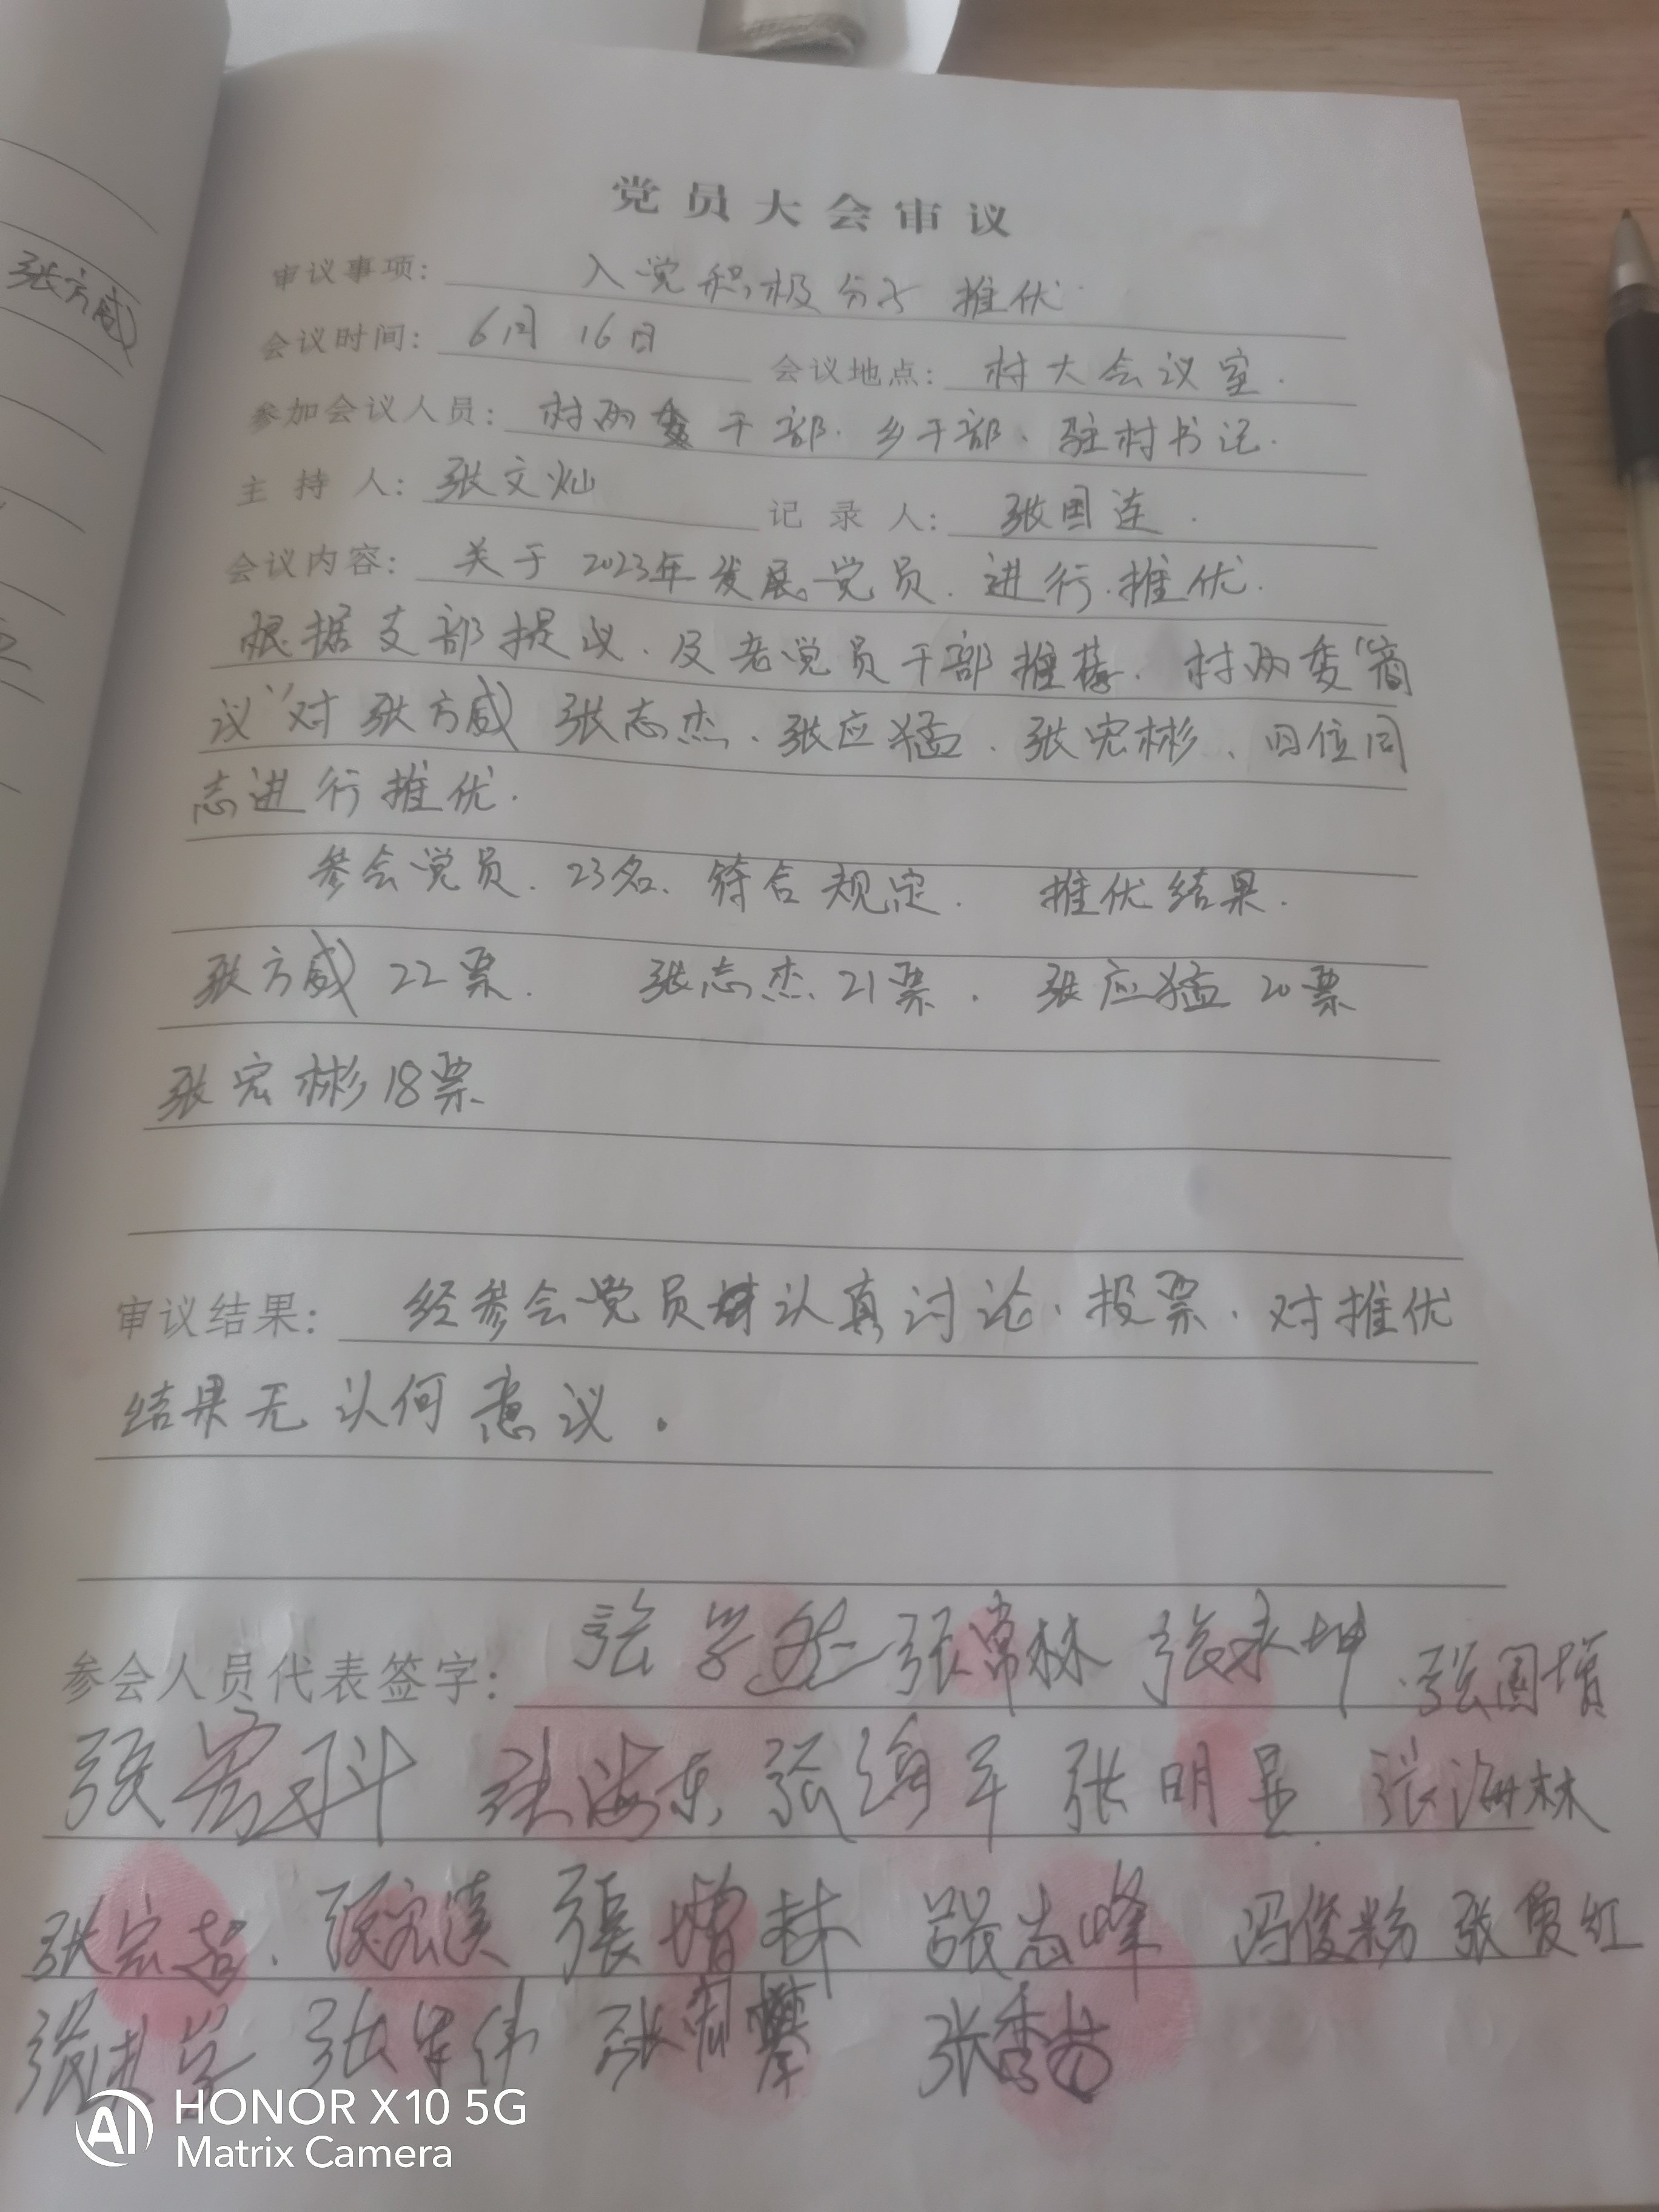 张方威
党员大会审议
审议事项： 入党积极分子 推优
会议时间：6月 16日 会议地点：村大会议室.
参加会议人员：村两委干部. 乡干部、驻村书记.
主 持 人：张文灿 记 录 人：张国连.
会议内容： 关于 2023年发展党员. 进行.推优.
根据支部提议. 及老党员干部推荐. 村两委“商
议”对 张方威 张志杰、张应猛、张宏彬、四位同
志进行推优.
参会党员. 23名. 符合规定. 推优结果.
张方威 22票. 张志杰. 21票. 张应猛 20票
张宏彬18票
审议结果： 经参会党员认真讨论、投票. 对推优
结果无认何意议。
参会人员代表签字： 张常林 张永坤 张国增
张宏科 张海东 张海军 张明显. 张海林
张宏超. 張增林 张志峰 冯俊粉 张贯红
张军伟 张香芬
AI HONOR X10 5G
Matrix Camera